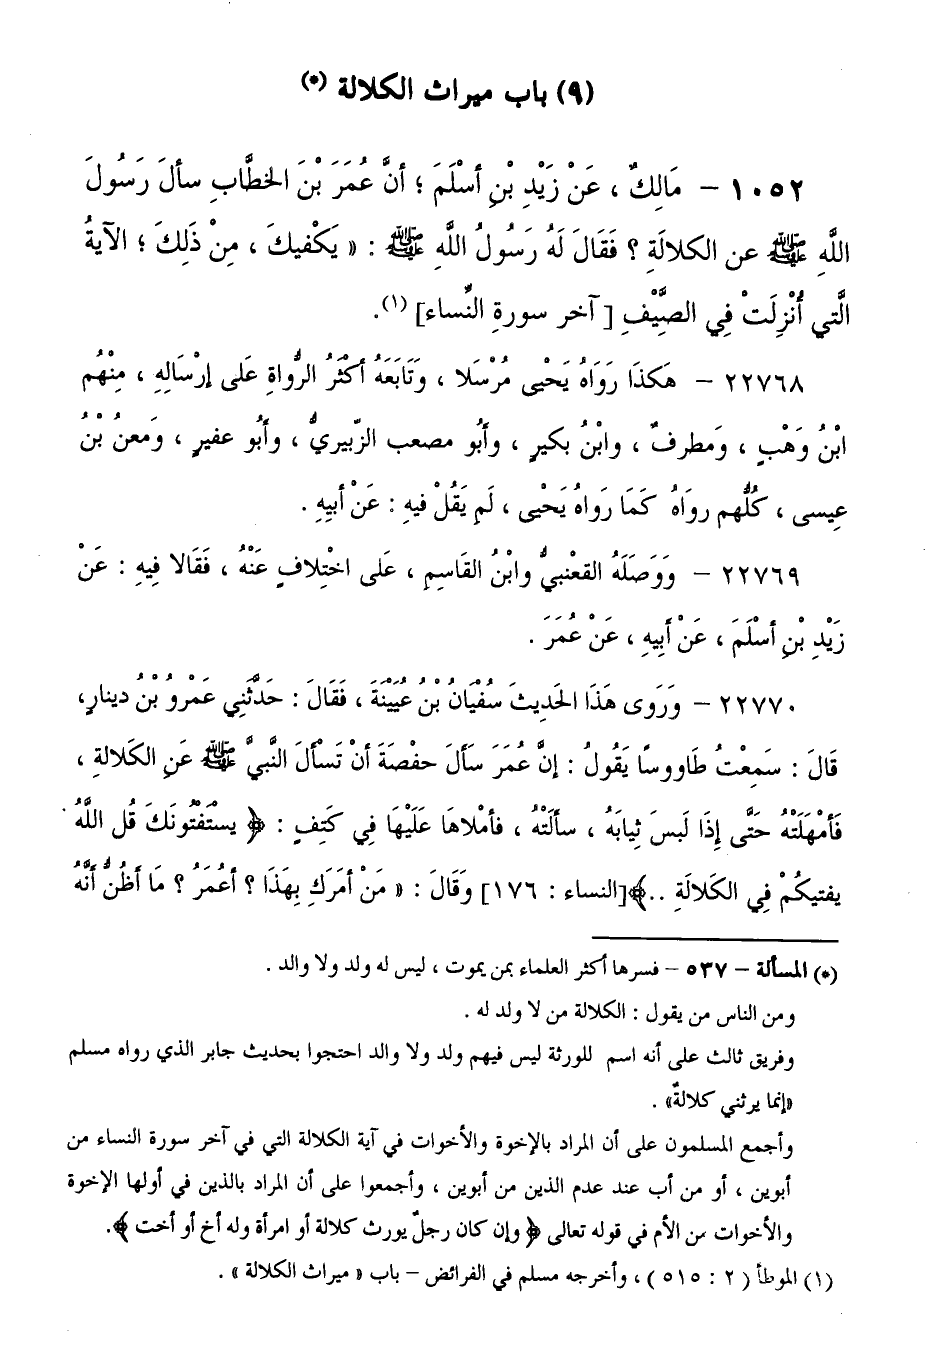 (٩) باب ميراث الكلالة (*)
١٠٥٢ - مَالِكٌ ، عَنْ زَيْدِ بْنِ أسْلَمَ ؛ أنَّ عُمَرَ بْنَ الخطَّابِ سألَ رَسُولَ
اللَّهِ ﷺ عن الكلالَةِ ؟ فَقَالَ لَهُ رَسُولُ اللَّهِ ﷺ : « يَكْفيكَ ، مِنْ ذَلِكَ ؛ الآيةُ
الَّتي أُنْزِلَتْ فِي الصَّيْفِ [ آخر سورةِ النِّساء] (١).
٢٢٧٦٨ - هَكذَا رَوَاهُ يَحْيى مُرْسَلا ، وَتَابَعَهُ أكْثَرُ الرُّواةِ عَلى إرْسَالِهِ ، مِنْهُم
ابْنُ وَهْبٍ ، وَمطرفٌ ، وابْنُ بكيرٍ ، وأَبُو مصعب الزّبيريُّ ، وأَبُو عفيرٍ ، وَمعنُ بْنُ
عِيسى ، كُلُّهم روَاهُ كَمَا رَواهُ يَحْيى ، لَمِ يَقُلْ فيهِ : عَنْ أبِيهِ .
٢٢٧٦٩ - وَوَصَلَهُ القعْنبيُّ وابْنُ القَاسِمِ ، عَلى اخْتِلافٍ عَنْهُ ، فَقَالا فِيهِ : عَنْ
زَيْدِ بْنِ أسْلَمَ ، عَنْ أَبِيهِ ، عَنْ عُمَرَ .
٢٢٧٧٠ - وَرَوى هَذَا الحَدِيثَ سُفْيَانُ بْنُ عُيَيْنَةَ ، فَقَالَ : حَدَّثَنِي عَمْرُو بْنُ دينارٍ،
قَالَ : سَمِعْتُ طَاووسًا يَقُولُ : إنَّ عُمَرَ سَأَلَ حفْصَةَ أنْ تَسْأَلَ النَّبيَّ ﷺ عَنِ الكَلالةِ ،
فَأمْهَلَتْهُ حَتَّى إِذَا لَبسَ ثِيابَهُ ، سألَتْهُ ، فأمْلاهَا عَلَيْهَا فِي كَتِفٍ : ﴿ يستَفْتُونَكَ قُل اللَّهُ
يفتيكُمْ فِي الكَلالَةِ ..﴾[النساء : ١٧٦] وَقَالَ : « مَنْ أمَرَكِ بِهَذَا ؟ أعُمَرُ ؟ مَا أظُنُّ أنَّهُ
(*) المسألة - ٥٣٧ - فسرها أكثر العلماء بمن يموت ، ليس له ولد ولا والد .
ومن الناس من يقول : الكلالة من لا ولد له .
وفريق ثالث على أنه اسم للورثة ليس فيهم ولد ولا والد احتجوا بحديث جابر الذي رواه مسلم
«إنما يرثني كلالةٌ» .
وأجمع المسلمون على أن المراد بالإخوة والأخوات في آية الكلالة التي في آخر سورة النساء من
أبوين ، أو من أب عند عدم الذين من أبوين ، وأجمعوا على أن المراد بالذين في أولها الإخوة
والأخوات من الأم في قوله تعالى ﴿ وإن كان رجلٌ يورث كلالة أو امرأة وله أخ أو أخت ﴾.
(١) الموطأ ( ٢ : ٥١٥ ) ، وأخرجه مسلم في الفرائض - باب « ميراث الكلالة » .